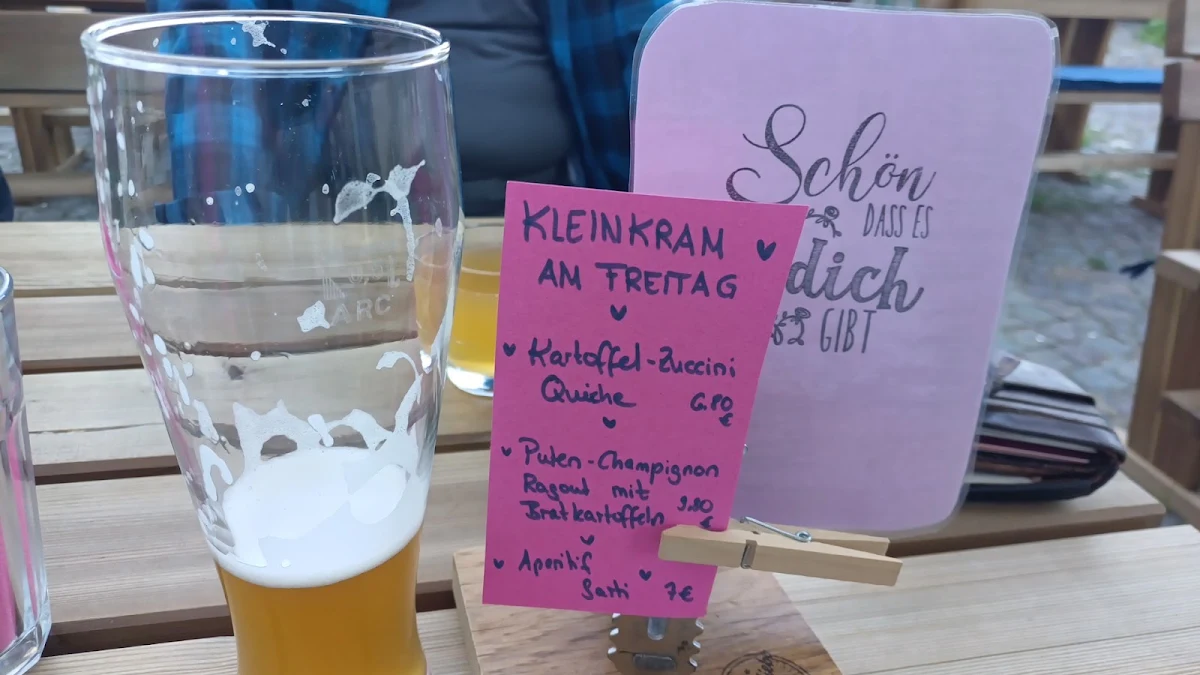 Schön
DASS ES
dich
GIBT
KLEINKRAM
AM FREITAG
Kartoffel-Zuccini
Quiche 6.80
€
Puten-Champignon
Ragout mit
Bratkartoffeln 9.80
€
Aperitif
Sarti 7€
ARC